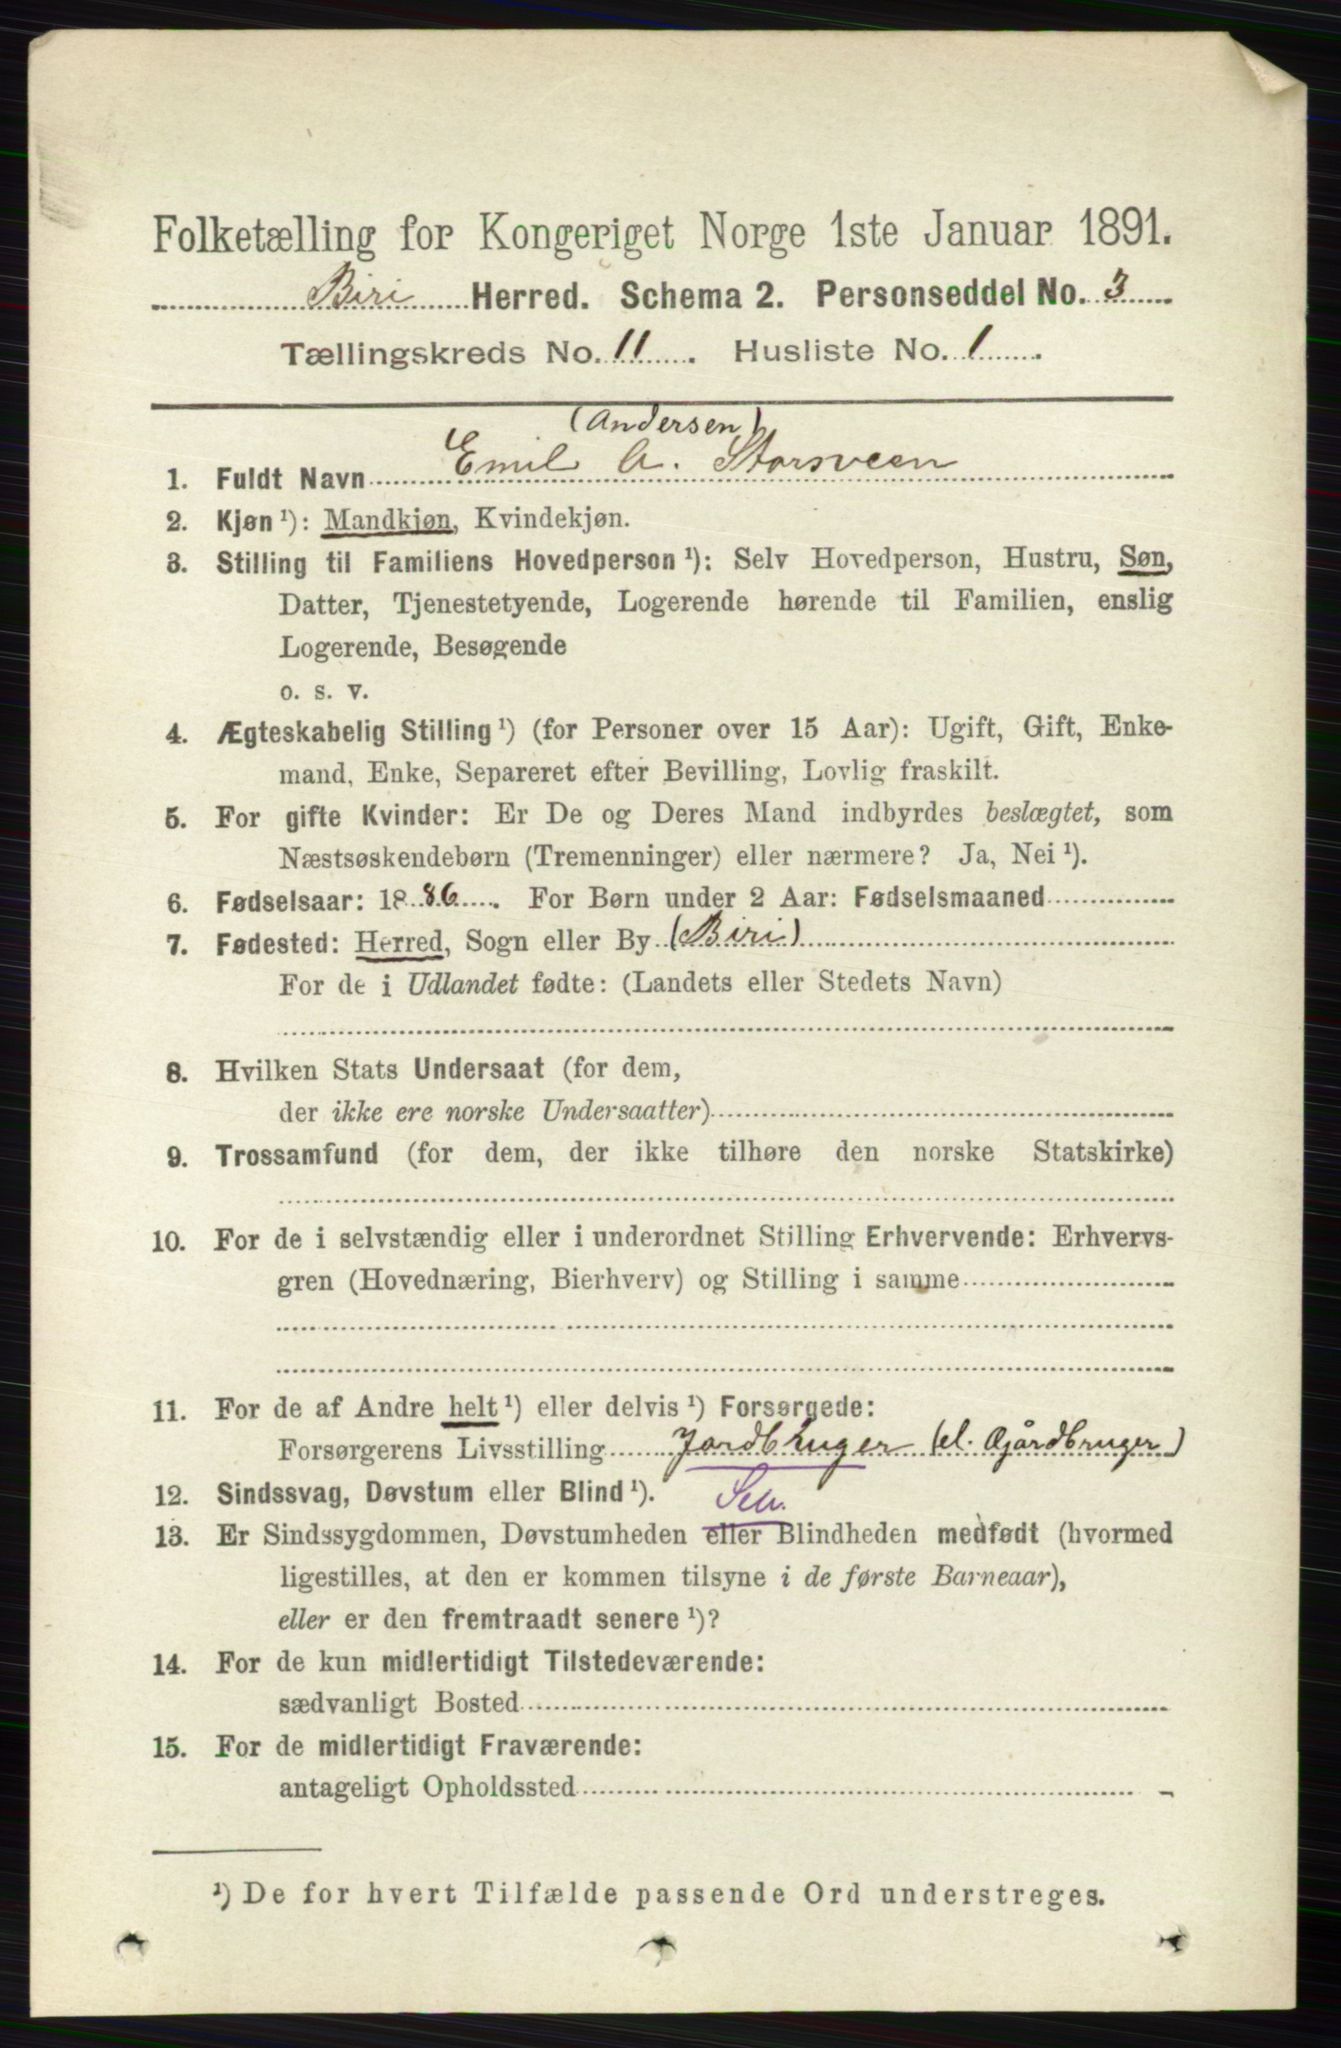 Folketælling for Kongeriget Norge 1ste Januar 1891.
Biri Herred. Schema 2. Personseddel No. 3
Tællingskreds No. 11. Husliste No. 1.
(Andersen)
1. Fuldt Navn Emil A. Storsveen
2. Kjøn ¹): Mandkjøn, Kvindekjøn.
3. Stilling til Familiens Hovedperson ¹): Selv Hovedperson, Hustru, Søn,
Datter, Tjenestetyende, Logerende hørende til Familien, enslig
Logerende, Besøgende
o. s. v.
4. Ægteskabelig Stilling ¹) (for Personer over 15 Aar): Ugift, Gift, Enke-
mand, Enke, Separeret efter Bevilling, Lovlig fraskilt.
5. For gifte Kvinder: Er De og Deres Mand indbyrdes beslægtet, som
Næstsøskendebørn (Tremenninger) eller nærmere? Ja, Nei ¹).
6. Fødselsaar: 1886. For Børn under 2 Aar: Fødselsmaaned
7. Fødested: Herred, Sogn eller By (Biri)
For de i Udlandet fødte: (Landets eller Stedets Navn)
8. Hvilken Stats Undersaat (for dem,
der ikke ere norske Undersaatter)
9. Trossamfund (for dem, der ikke tilhøre den norske Statskirke)
10. For de i selvstændig eller i underordnet Stilling Erhvervende: Erhvervs-
gren (Hovednæring, Bierhverv) og Stilling i samme
11. For de af Andre helt ¹) eller delvis ¹) Forsørgede:
Forsørgerens Livsstilling Jordbruger (el. Gårdbruger)
12. Sindssvag, Døvstum eller Blind ¹). Selv.
13. Er Sindssygdommen, Døvstumheden eller Blindheden medfødt (hvormed
ligestilles, at den er kommen tilsyne i de første Barneaar),
eller er den fremtraadt senere ¹)?
14. For de kun midlertidigt Tilstedeværende:
sædvanligt Bosted
15. For de midlertidigt Fraværende:
antageligt Opholdssted
¹) De for hvert Tilfælde passende Ord understreges.